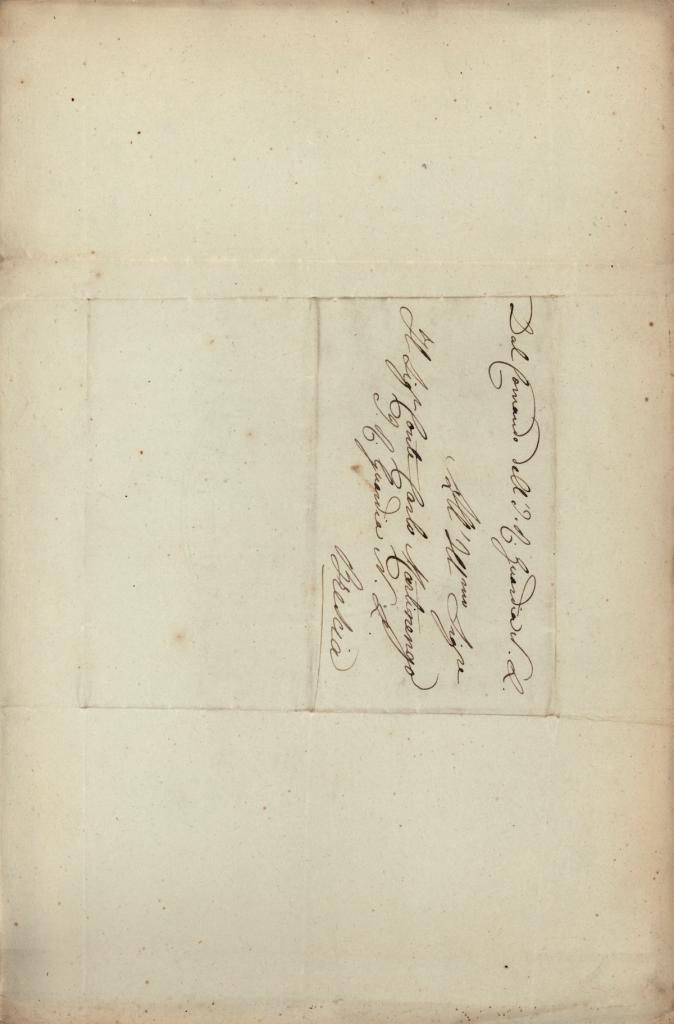 Dal Comando dell'I. R. Guardia N. L.
All' Illmo Sigre
Il Sigr Conte Carlo Martinengo
I. R. Guardia N. L.
Brescia